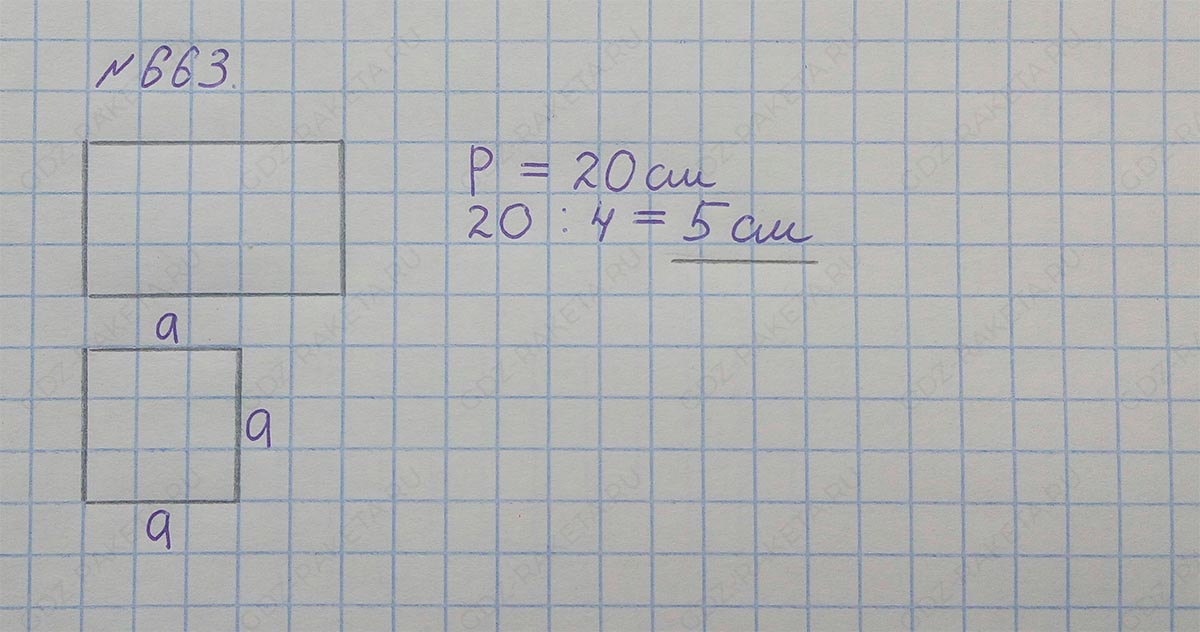 №663.
P = 20 см
20 : 4 = 5 см
a
a
a
GDZ-RAKETA.RU